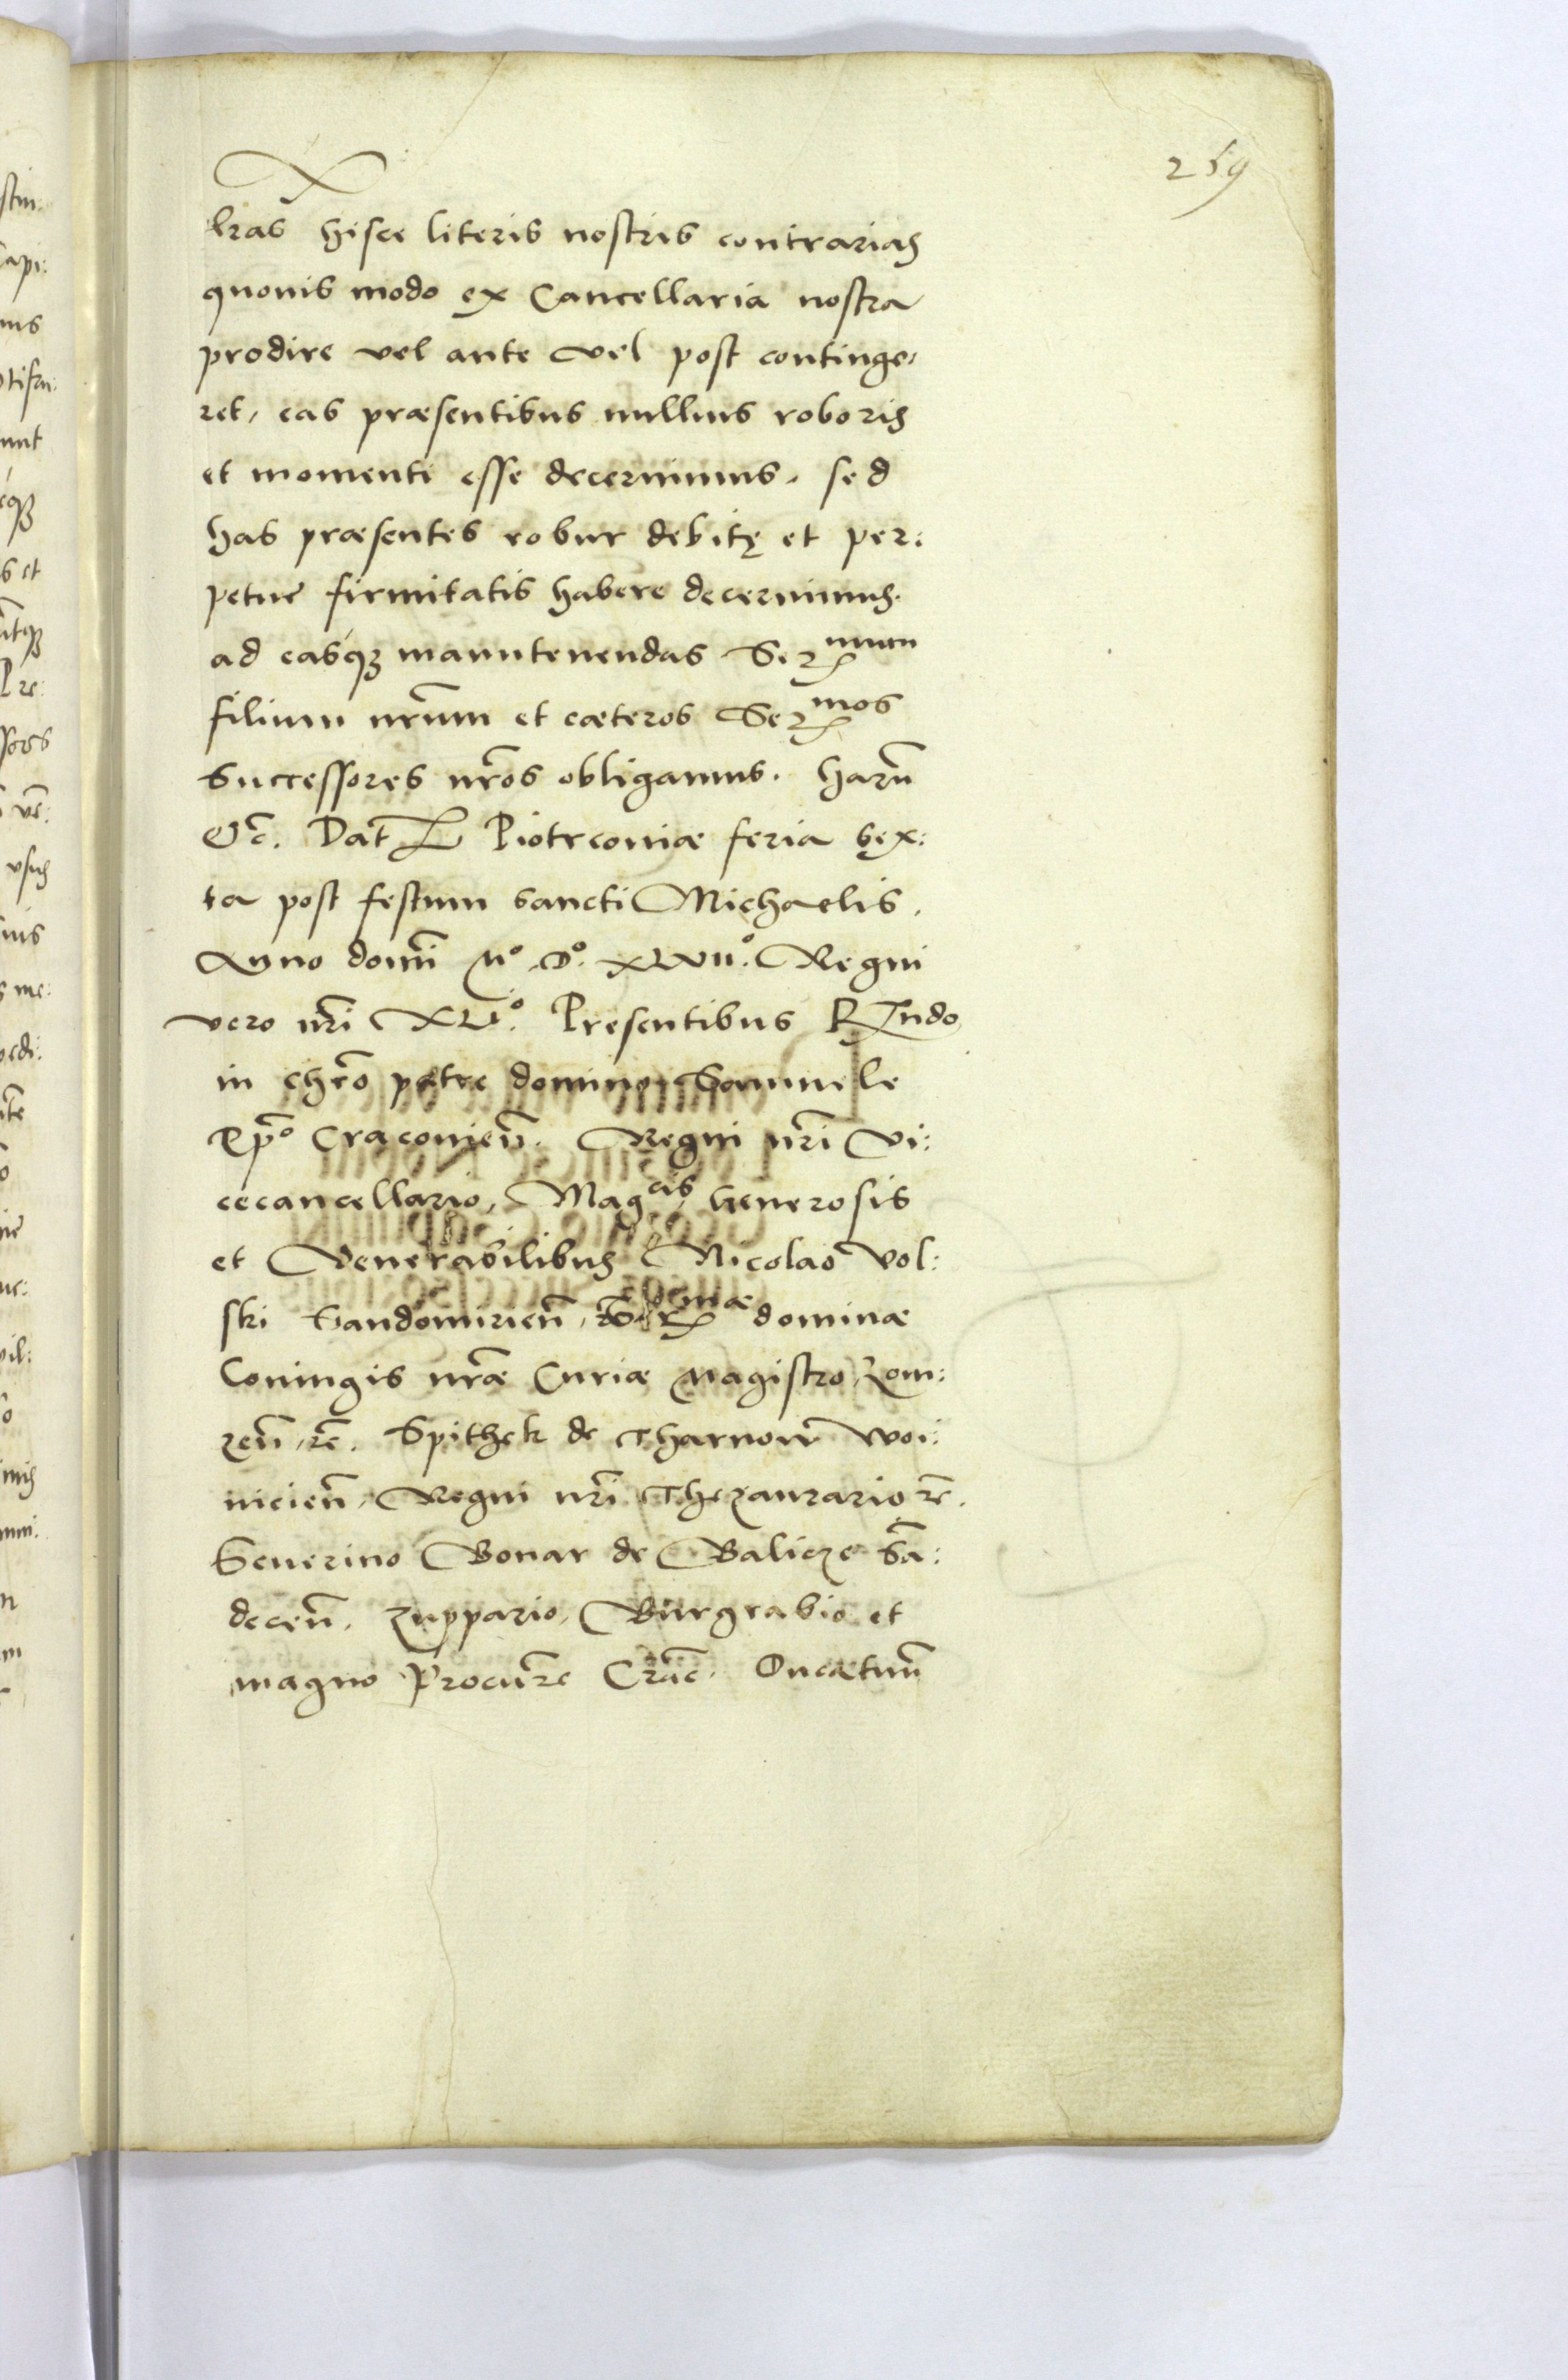 259
lr̃as hisce literis nostris contrarias
quouis modo ex Cancellaria nostra
prodire vel ante vel post continge,
ret, eas præsentibus nullius roboris
et momenti esse decernimus. sed
has præsentes robur debitę et per:
petue firmitatis habere decernimus.
ad easq́ꝫ manutenendas Ser^mum
filium nr̃um et cæteros Ser^mos
Successores nr̃os obligamus. harũ
Etc̃. Dat̃ Piotrconiæ feria sex:
ta post festum sancti Michaelis.
Anno domĩ Mº. Dº. XLVIIº. Regni
vero nr̃i XLº. Presentibus R^ndo
in chr̃o patre domino Samuele
Ep̃o Cracovieñ. Regni nr̃i Vi:
cecancellario, Mag^cis, Generosis
et Venerabilibus Nicolao Vol:
ski Sandomirieñ, Ser^mæ dominæ
Coniugis nr̃æ Curiæ Magistro, Lom:
zeñ, rc̃. Spithek de Tharnow Woi:
nicieñ, Regni nr̃i Thezaurario rc̃.
Seuerino Bonar de Balicze Sã:
deceñ, Zuppario, Burgrabio et
magno Procur̃e Crac̃.